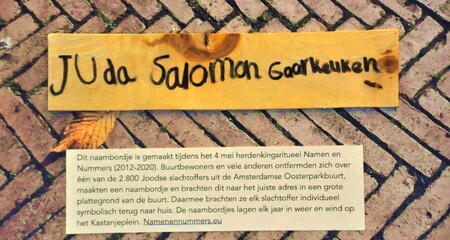 JUda Salomon Gaarkeuken.
Dit naambordje is gemaakt tijdens het 4 mei herdenkingsritueel Namen en
Nummers (2012-2020). Buurtbewoners en vele anderen ontfermden zich over
één van de 2.800 Joodse slachtoffers uit de Amsterdamse Oosterparkbuurt,
maakten een naambordje en brachten dit naar het juiste adres in een grote
plattegrond van de buurt. Daarmee brachten ze elk slachtoffer individueel
symbolisch terug naar huis. De naambordjes lagen elk jaar in weer en wind op
het Kastanjeplein. Namenennummers.eu